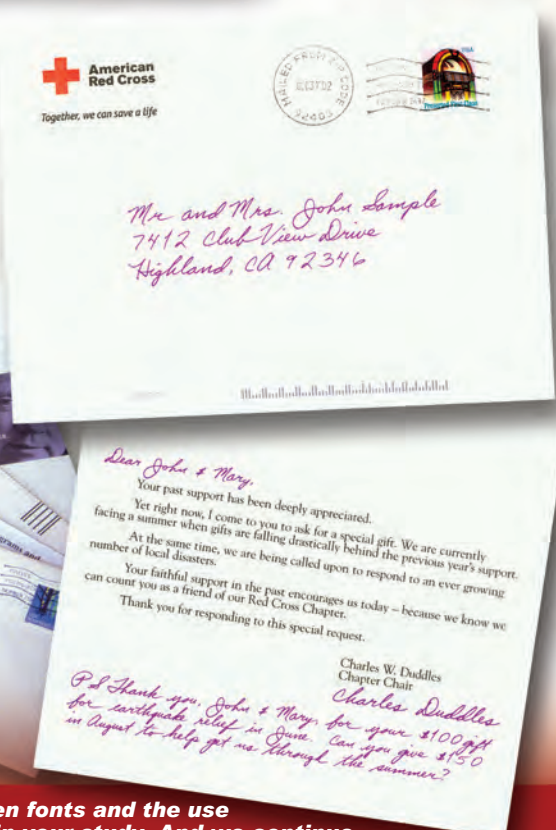 American
Red Cross
Together, we can save a life
MAILED FROM ZIP CODE
USA
Mr and Mrs. John Sample
7412 Club View Drive
Highland, CA 92346
Dear John & Mary,
Your past support has been deeply appreciated.
Yet right now, I come to you to ask for a special gift. We are currently
facing a summer when gifts are falling drastically behind the previous year's support.
At the same time, we are being called upon to respond to an ever growing
number of local disasters.
Your faithful support in the past encourages us today – because we know we
can count you as a friend of our Red Cross Chapter.
Thank you for responding to this special request.
Charles W. Duddles
Chapter Chair
Charles Duddles
PS Thank you, John & Mary, for your $100 gift
for earthquake relief in June. Can you give $150
in August to help get us through the summer?
grams and
en fonts and the use
in your study. And we continue